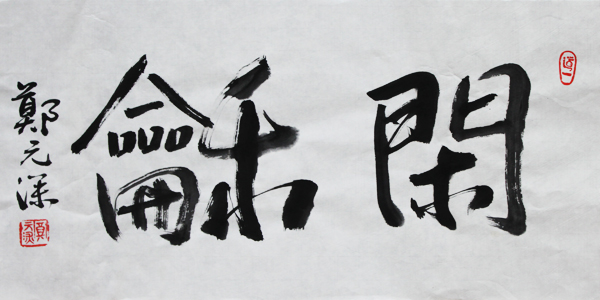 閑龢
鄭元深